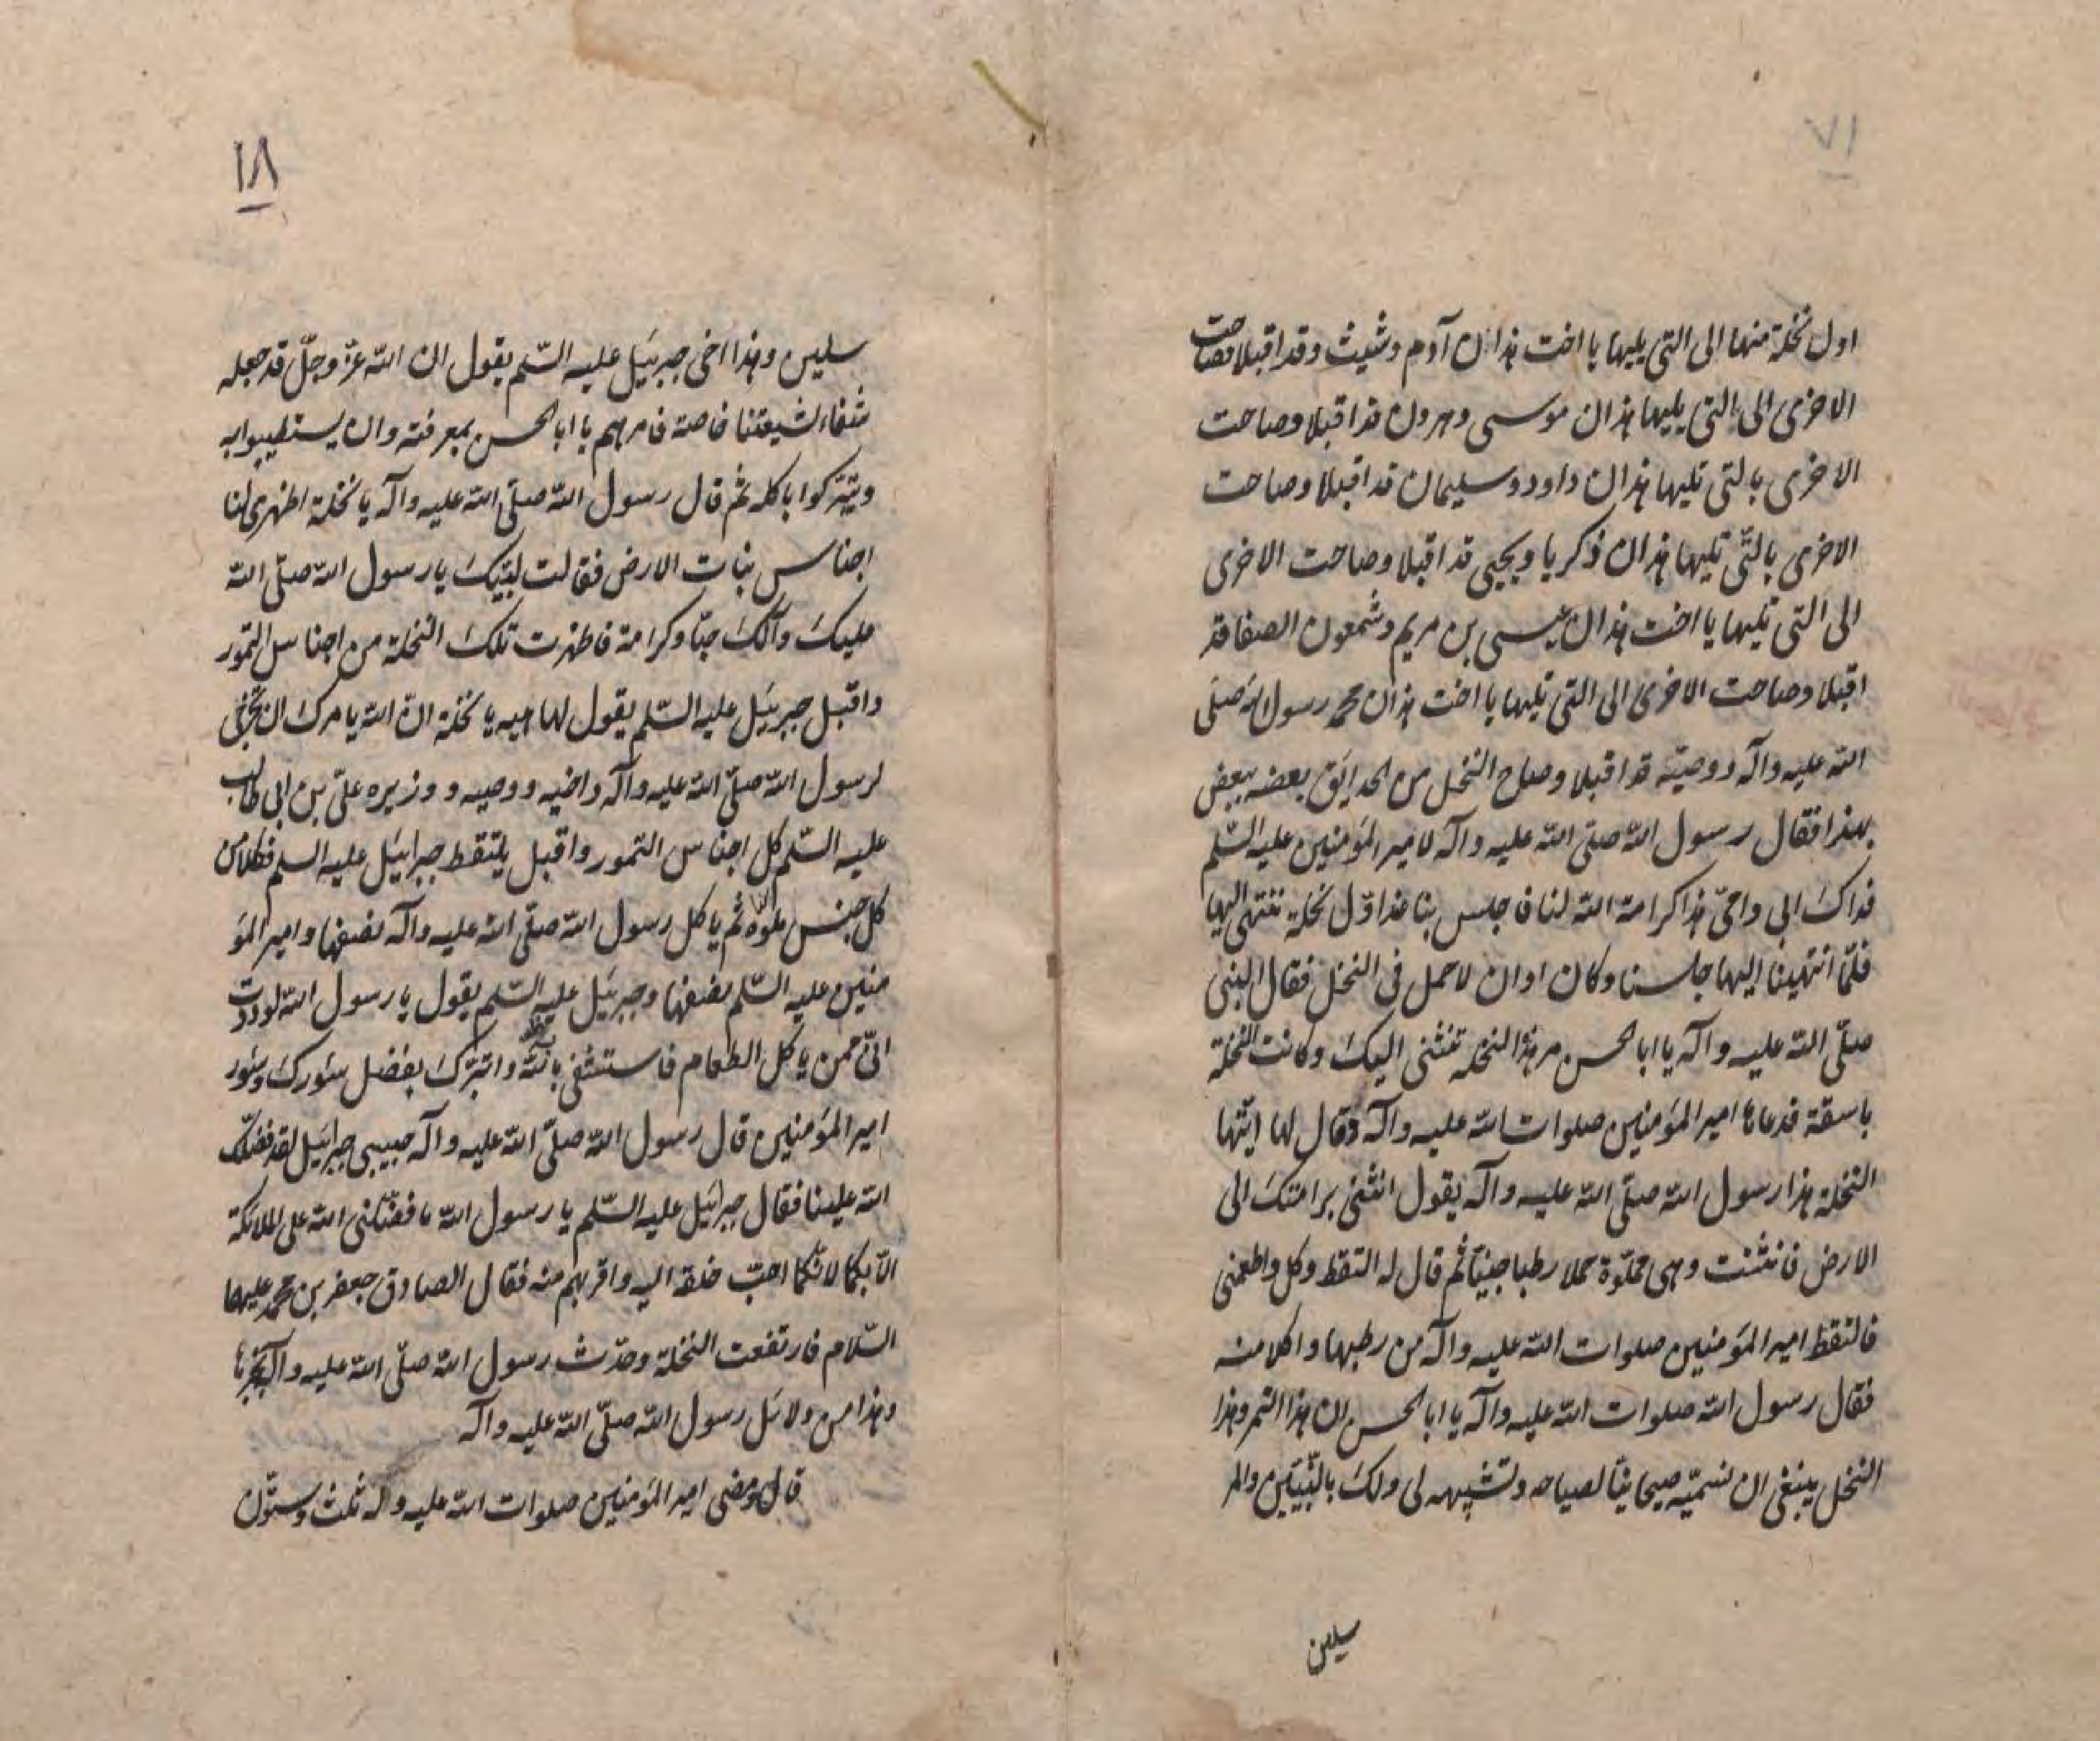 ٧١
اول نخلة منها الى التى يليها يا اخت هذان آدم وشيث وقد اقبلا فصاحت
الاخرى الى التى يليها هذان موسى وهرون قد اقبلا وصاحت
الاخرى بالتى تليها هذان داود وسليمان قد اقبلا وصاحت
الاخرى بالتّى تليها هذان ذكريا ويحيى قد اقبلا وصاحت الاخرى
الى التى تليها يا اخت هذان عيسى بن مريم وشمعون الصفا قد
اقبلا وصاحت الاخرى الى التى تليها يا اخت هذان محمد رسول الله صلى
الله عليه وآله ووصيّه قد اقبلا وصاح النخل من الحدايق بعضه ببعض
بهذا فقال رسول الله صلّى الله عليه وآله لامير المؤمنين عليه السّلم
فداك ابى وامّى هذا كرامة الله لنا فاجلس بنا عند اوّل نخلة ننتهى اليها
فلمّا انتهينا اليها جلسنا وكان اوان لا حمل فى النخل فقال النبى
صلّى الله عليه وآله يا ابا الحسن مر هذا النخلة تنثنى اليك وكانت النخلة
باسقة فدعاها امير المؤمنين صلوات الله عليه وآله وقال لها ايّتها
النخلة هذا رسول الله صلّى الله عليه وآله يقول انثنى براسك الى
الارض فانثنت وهى مملوّة حملا رطبا جنيّا ثم قال له التقط وكل واطعمنى
فالتقط امير المؤمنين صلوات الله عليه وآله من رطبها واكلا منه
فقال رسول الله صلوات الله عليه وآله يا ابا الحسن ان هذا التمر وهذا
النخل ينبغى ان نسمّيه صيحانيّا لصياحه وتشبيهه لى ولك بالنّبيّين والمر
سلين
١٨
سلين وهذا اخى جبرئيل عليه السّلم يقول ان الله عزّ وجلّ قد جعله
شفاء لشيعتنا خاصة فامرهم يا ابا الحسن بمعرفته وان يستطيبوا به
ويتبركوا باكله ثم قال رسول الله صلّى الله عليه وآله يا نخلة اظهرى لنا
اجناس نبات الارض فقالت لبّيك يا رسول الله صلّى الله
عليك وآلك حبّا وكرامة فاظهرت تلك النخلة من اجناس التمور
واقبل جبرئيل عليه السّلم يقول لها هيه يا نخلة انّ الله يامرك ان تخرجى
لرسول الله صلّى الله عليه وآله واخيه ووصيه ووزيره علىّ بن ابى طالب
عليه السّلم كل اجناس التمور واقبل يلتقط جبرايئل عليه السلم فكلا من
كل جنس ثم ياكل رسول الله صلّى الله عليه وآله نصفها وامير المؤ
منين عليه السّلم نصفها وجبرئيل عليه السّلم يقول يا رسول الله لوددت
انّى ممن ياكل الطعام فاستشفى بالله واتبرّك بفضل سؤرك وسؤر
امير المؤمنين قال رسول الله صلّى الله عليه وآله حبيبى جبرائيل لقد فضلك
الله علينا فقال جبرائيل عليه السّلم يا رسول الله ما فضّلنى الله على الملائكة
الّا بكما لانّكما احبّ خلقه اليه واقربهم منه فقال الصادق جعفر بن محمد عليهما
السّلام فارتفعت النخلة وحدّث رسول الله صلّى الله عليه وآله بخبرها
وهذا من دلائل رسول الله صلّى الله عليه وآله
قال ومضى امير المؤمنين صلوات الله عليه وآله ثلث وستّون